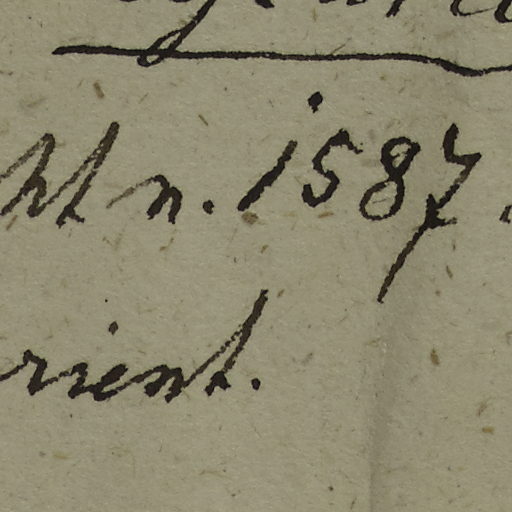 ht n. 1587.
rient.